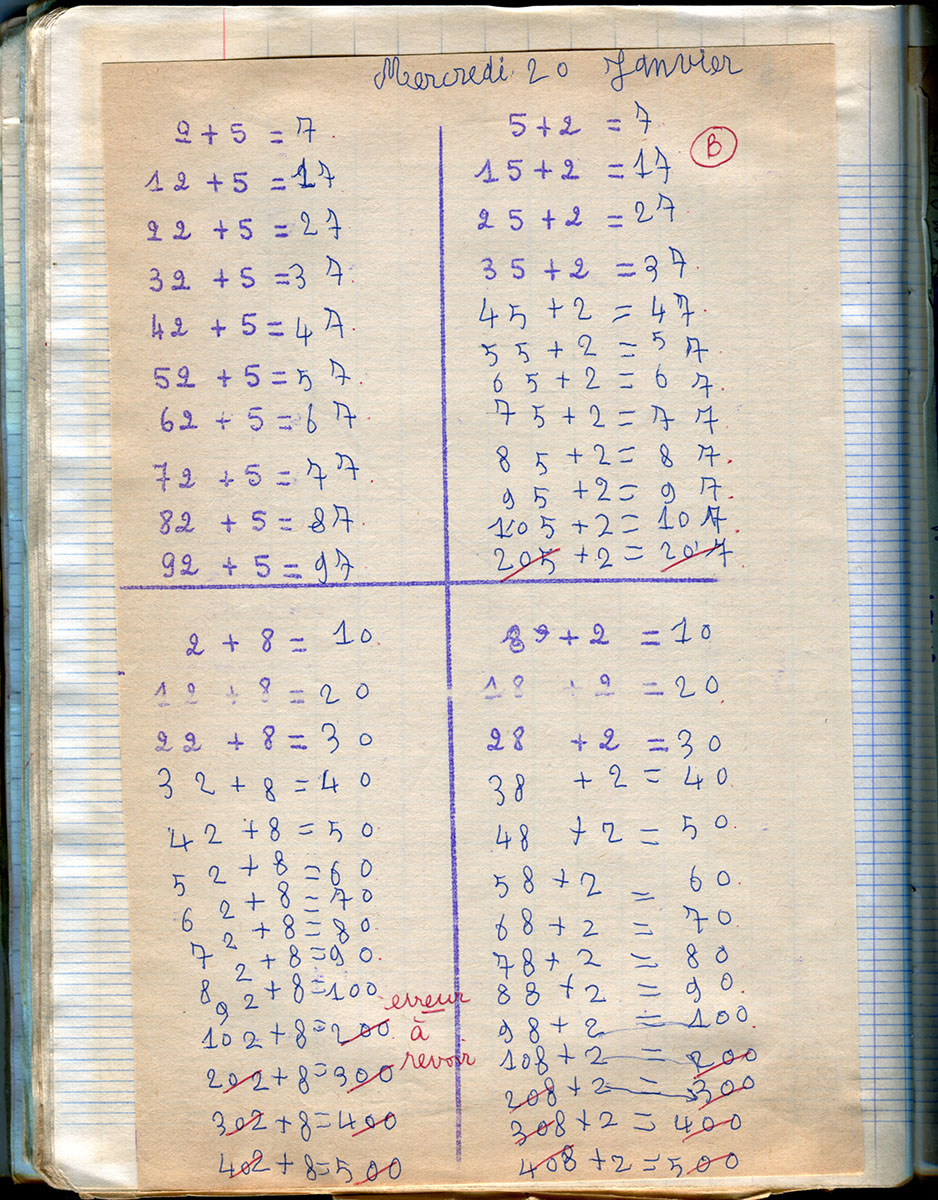 Mercredi 20 Janvier
2 + 5 = 7
12 + 5 = 17
22 + 5 = 27
32 + 5 = 37
42 + 5 = 47
52 + 5 = 57
62 + 5 = 67
72 + 5 = 77
82 + 5 = 87
92 + 5 = 97
5 + 2 = 7
B
15 + 2 = 17
25 + 2 = 27
35 + 2 = 37
45 + 2 = 47
55 + 2 = 57
65 + 2 = 67
75 + 2 = 77
85 + 2 = 87
95 + 2 = 97
105 + 2 = 107
205 + 2 = 207
2 + 8 = 10
12 + 8 = 20
22 + 8 = 30
32 + 8 = 40
42 + 8 = 50
52 + 8 = 60
62 + 8 = 70
72 + 8 = 80
82 + 8 = 90
92 + 8 = 100
102 + 8 = 200
202 + 8 = 300
302 + 8 = 400
402 + 8 = 500
erreur
à
revoir
8 + 2 = 10
18 + 2 = 20
28 + 2 = 30
38 + 2 = 40
48 + 2 = 50
58 + 2 = 60
68 + 2 = 70
78 + 2 = 80
88 + 2 = 90
98 + 2 = 100
108 + 2 = 200
208 + 2 = 300
308 + 2 = 400
408 + 2 = 500